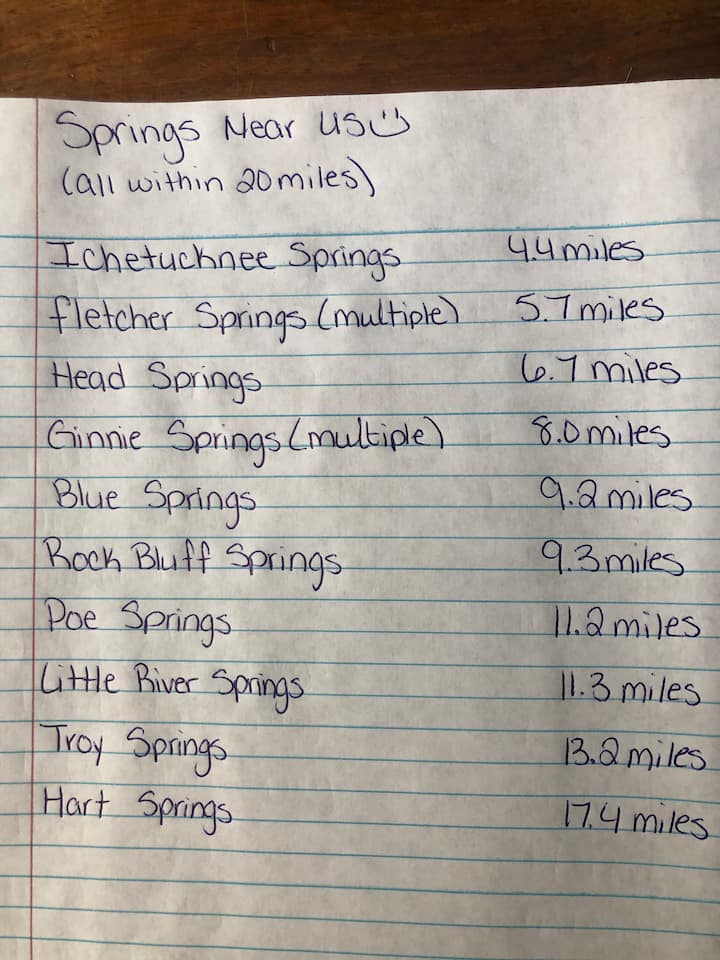 Springs Near US :)
(all within 20 miles)
Ichetucknee Springs 4.4 miles
fletcher Springs (multiple) 5.7 miles
Head Springs 6.7 miles
Ginnie Springs (multiple) 8.0 miles
Blue Springs 9.2 miles
Rock Bluff Springs 9.3 miles
Poe Springs 11.2 miles
Little River Springs 11.3 miles
Troy Springs 13.2 miles
Hart Springs 17.4 miles